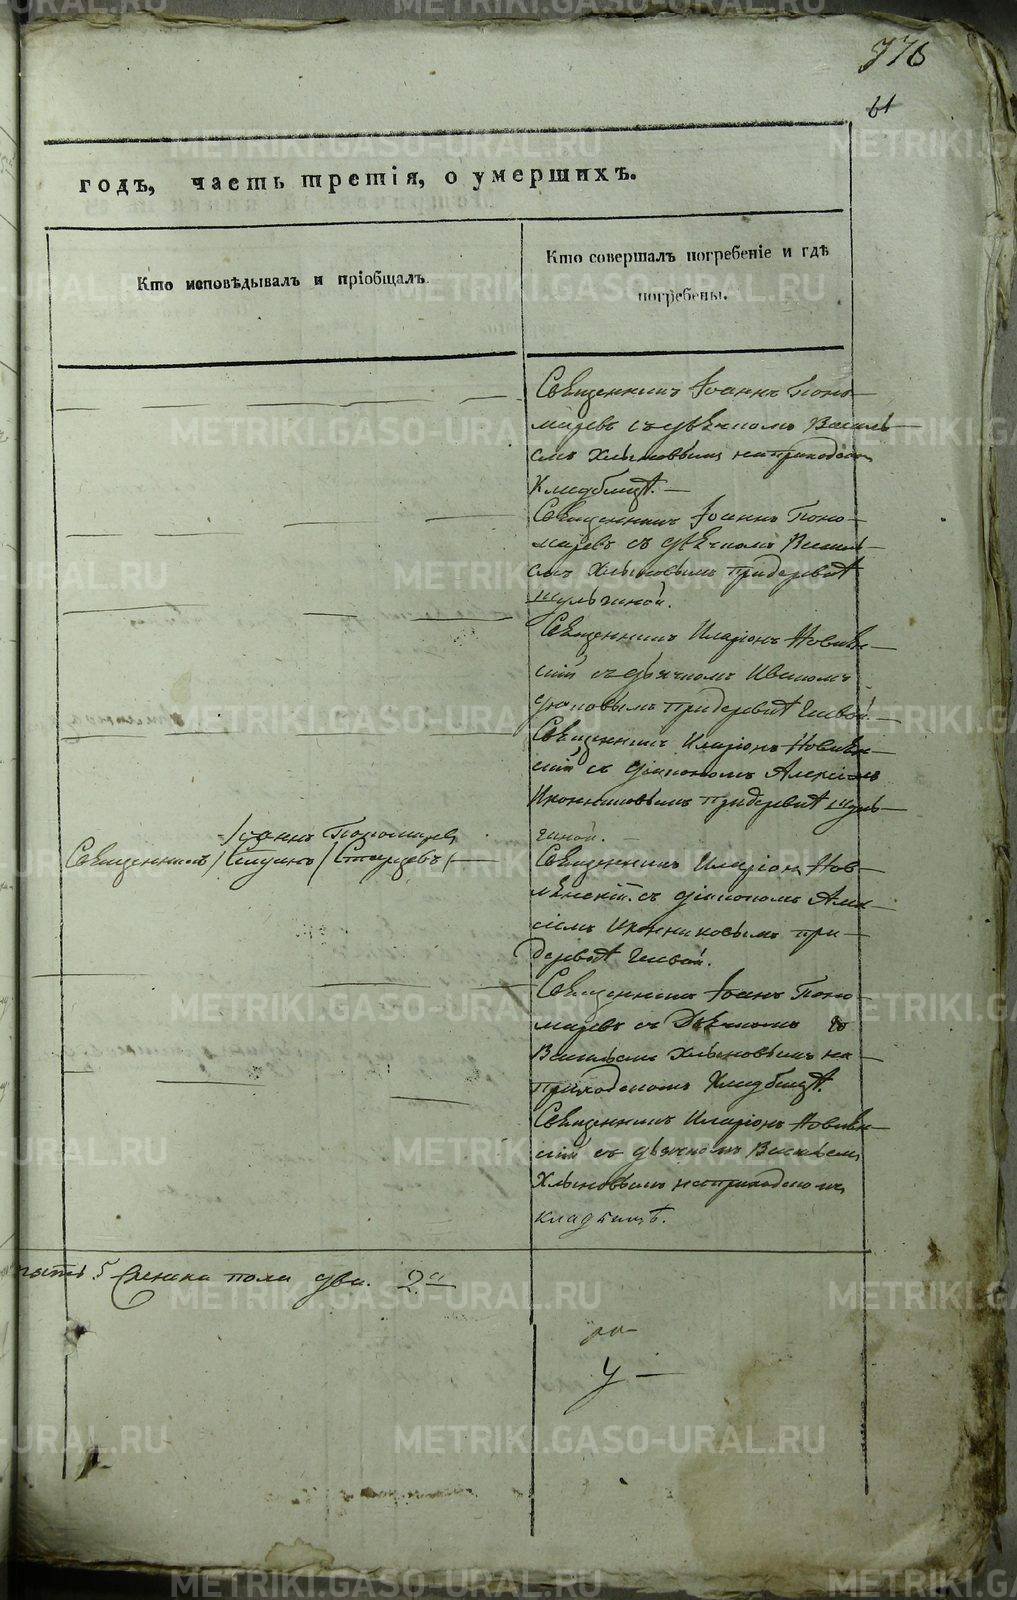 776
61
годъ, часть третія, о умершихъ.
Кто исповѣдывалъ и пріобщалъ.
Кто совершалъ погребеніе и гдѣ
погребены.
Священникъ Іоаннъ Поно-
маревъ съ дьячкомъ Василь-
емъ Хлыновымъ на приходском
кладбищѣ.—
Священникъ Іоаннъ Поно-
маревъ съ дьячкомъ Василь-
емъ Хлыновымъ при деревнѣ
Шульгиной.
Священникъ Иларіонъ
съ дьячкомъ Иваномъ
при деревнѣ
Священникъ Иларіонъ
съ діакономъ Алексіемъ
Иконниковымъ при деревнѣ Шуль-
гиной.—
Іоаннъ Пономаревъ
Священникъ
Священникъ Иларіон
съ діакономъ Алек-
сіемъ Иконниковымъ при
деревнѣ
Священникъ Іоанъ Поно-
маревъ съ Дьячкомъ
Васильемъ Хлыновымъ на
приходскомъ кладбищѣ.
Священникъ Иларіонъ
съ дьячкомъ Васильем
Хлыновымъ на приходскомъ
кладбищѣ.
пола два. 2
METRIKI.GASO-URAL.RU